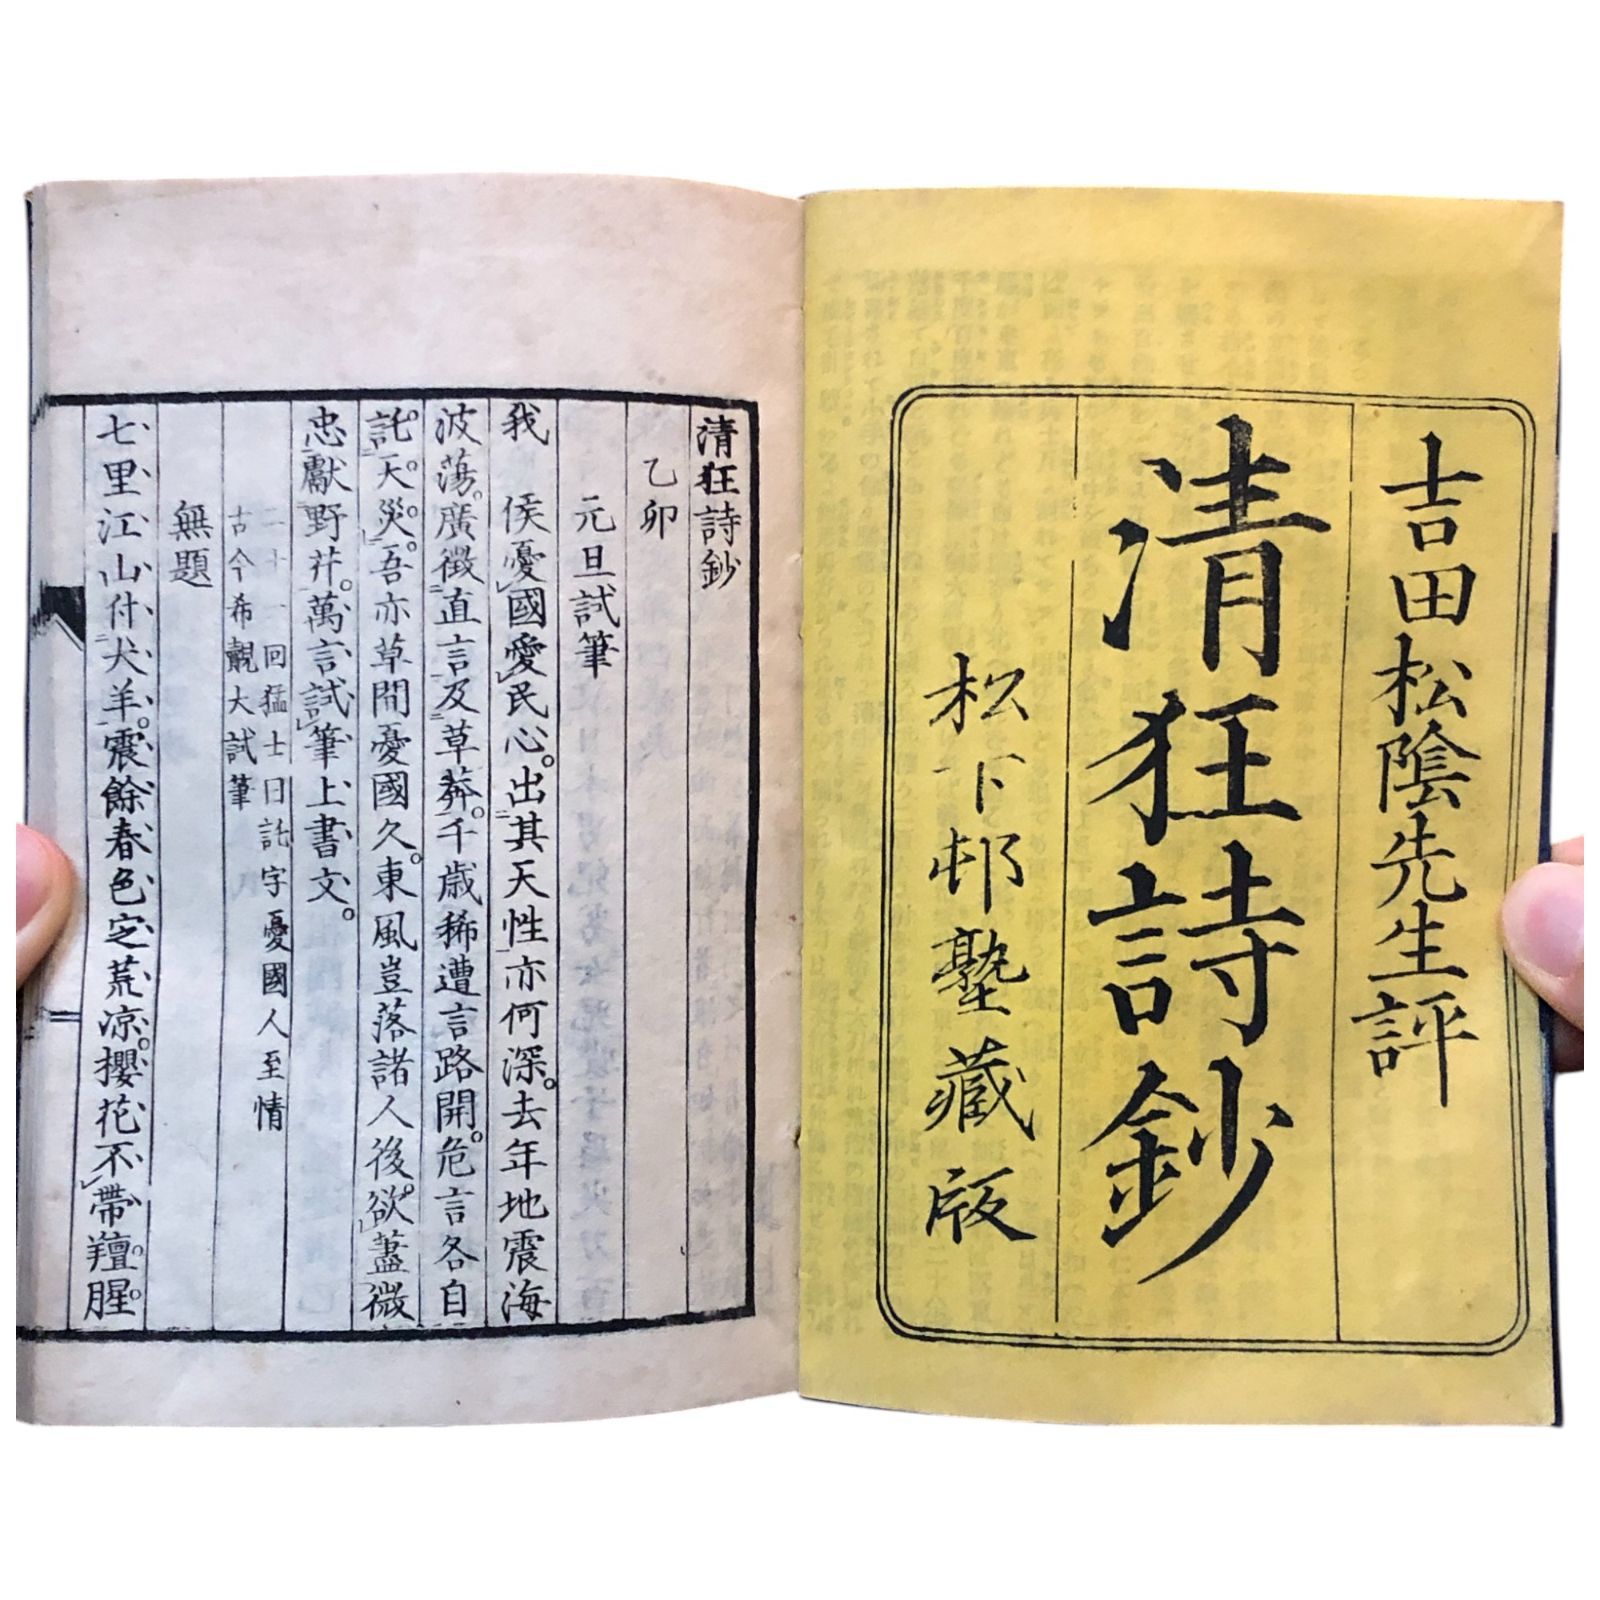 吉田松陰先生評
清狂詩鈔
松下邨塾藏版
清狂詩鈔
乙卯
元旦試筆
我 侯憂國愛民心。出其天性亦何深。去年地震海
波荡。廣徴直言及草莽。千歳稀遭言路開。危言各自
託。天災。吾亦草間憂國久。東風豈落諸人後。欲藎微
忠獻野芹。萬言試筆上書文。
二十一回猛士曰託字憂國人至情
古今希覯大試筆
無題
七里江山付犬羊。震餘春色定荒凉。櫻花不帶羶腥。